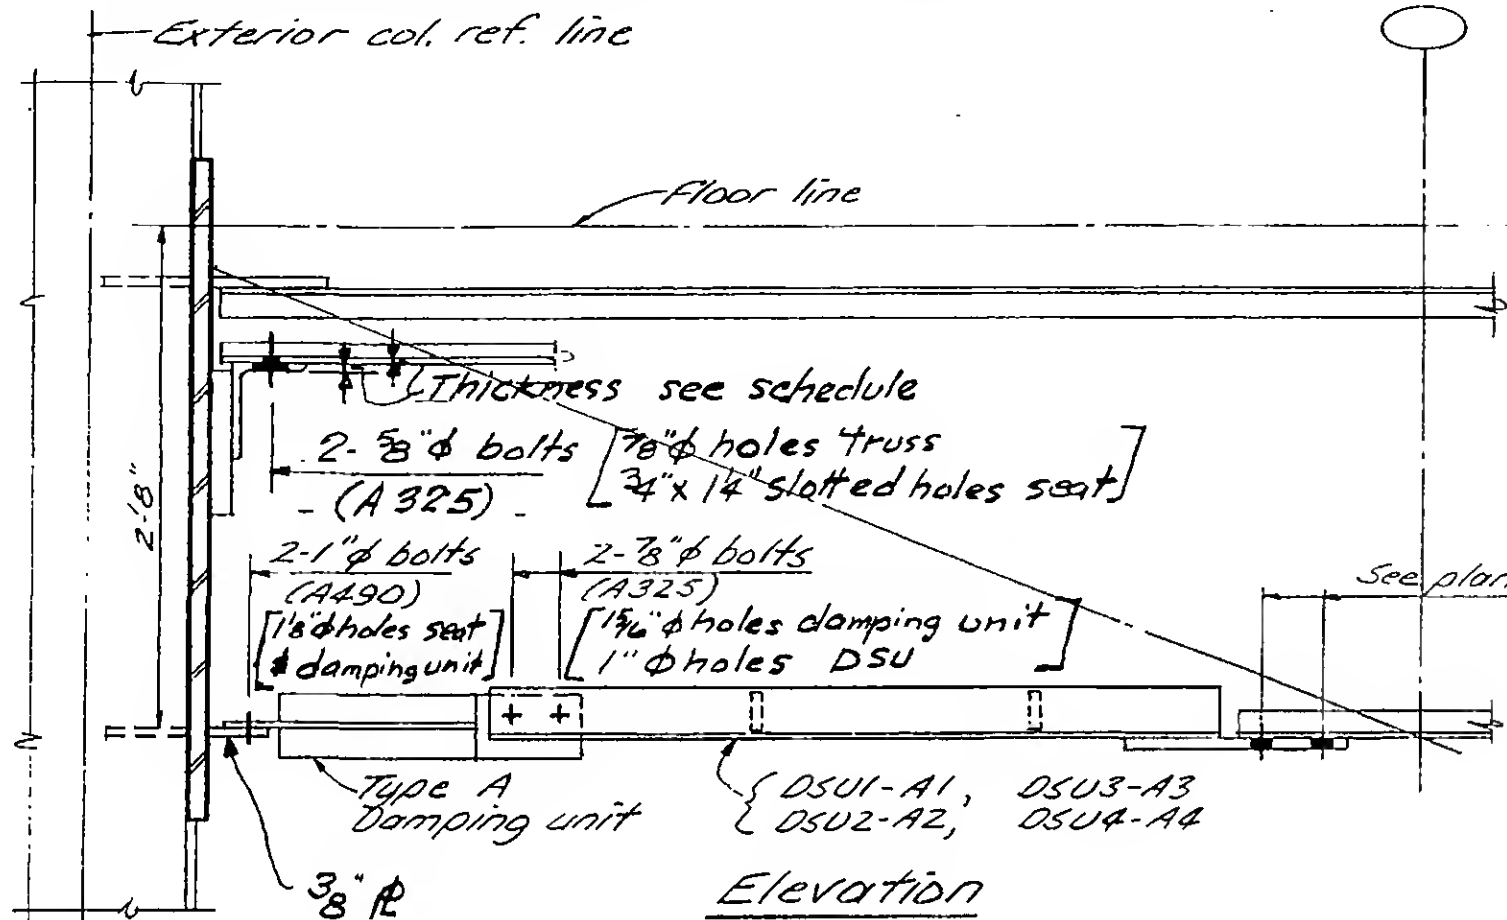 Exterior col. ref. line
Floor line
Thickness see schedule
2-5/8"ϕ bolts
(A 325)
[7/8"ϕ holes truss
3/4" x 14" slotted holes seat]
2'-8"
2-1"ϕ bolts
(A490)
[1 1/8"ϕ holes seat
& damping unit]
2-7/8"ϕ bolts
(A325)
[15/16"ϕ holes damping unit
1"ϕ holes DSU]
See plan
Type A
Damping unit
{DSU1-A1, DSU3-A3
DSU2-A2, DSU4-A4
3/8" PL
Elevation